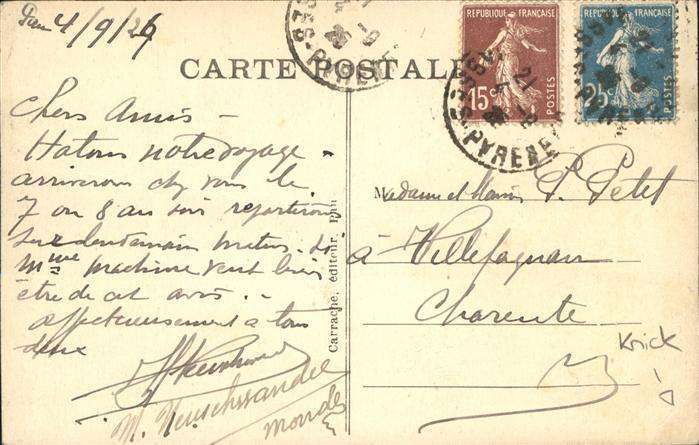 Pau 4/9/26
CARTE POSTALE
REPUBLIQUE FRANÇAISE
15c
POSTES
REPUBLIQUE FRANÇAISE
25c
POSTES
B-SES-PYRENEES
21
Chers Amis -
Hatons notre voyage -
arriverons chez vous le
7 ou 8 au soir repartirons
surlendemain matin. si
Mme machine veut bien
être de cet avis. -
affectueusement a tous
deux
M.
monde
Carrache, éditeur, Pau
Madame et Mons P. Petit
à Villefagnan
Charente
Knick